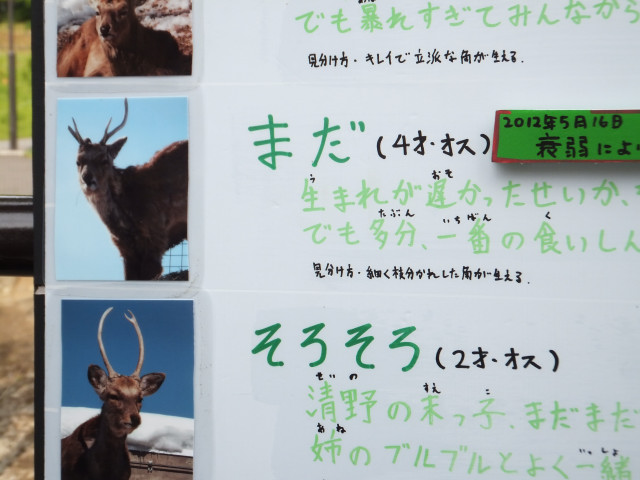 でも暴れすぎてみんなから
見分け方・キレイで立派な角が生える.
まだ(4才・オス)
2012年5月16日
衰弱によ
う おそ
生まれが遅かったせいか、
たぶん いちばん く
でも多分、一番の食いしん
見分け方・細く枝分かれした角が生える.
そろそろ(2才・オス)
せいの すえ こ
清野の末っ子、まだまだ
あね いっしょ
姉のブルブルとよく一緒